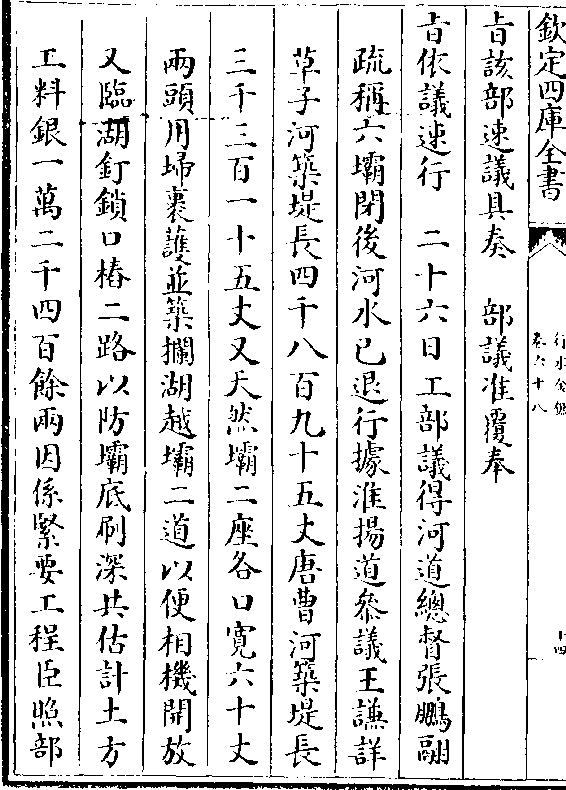 欽定四庫全書
行水金鑑
卷六十八
十四
旨該部速議具奏 部議准覆奉
旨依議速行 二十六日工部議得河道總督張鵬翮
疏稱六壩閉後河水已退行據淮揚道叅議王謙詳
草子河築堤長四千八百九十五丈唐曹河築堤長
三千三百一十五丈又天然壩二座各口寬六十丈
兩頭用埽裹護並築攔湖越壩二道以便相機開放
又臨湖釘鎖口樁二路以防壩底刷深共估計土方
工料銀一萬二千四百餘兩因係緊要工程臣照部